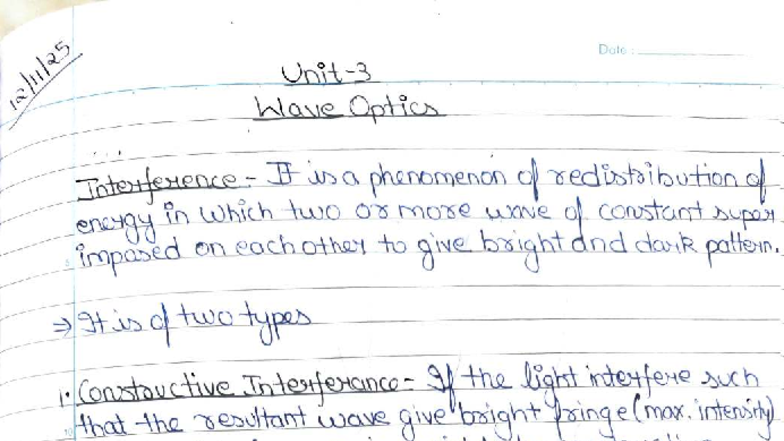 12/11/25
Date:
Unit-3
Wave Optics
Interference - It is a phenomenon of redistribution of
energy in which two or more wave of constant super
imposed on each other to give bright and dark pattern.
⇒ It is of two types
1. Constouctive Interferance - If the light interfere such
that the resultant wave give bright fringe (max. intensity)